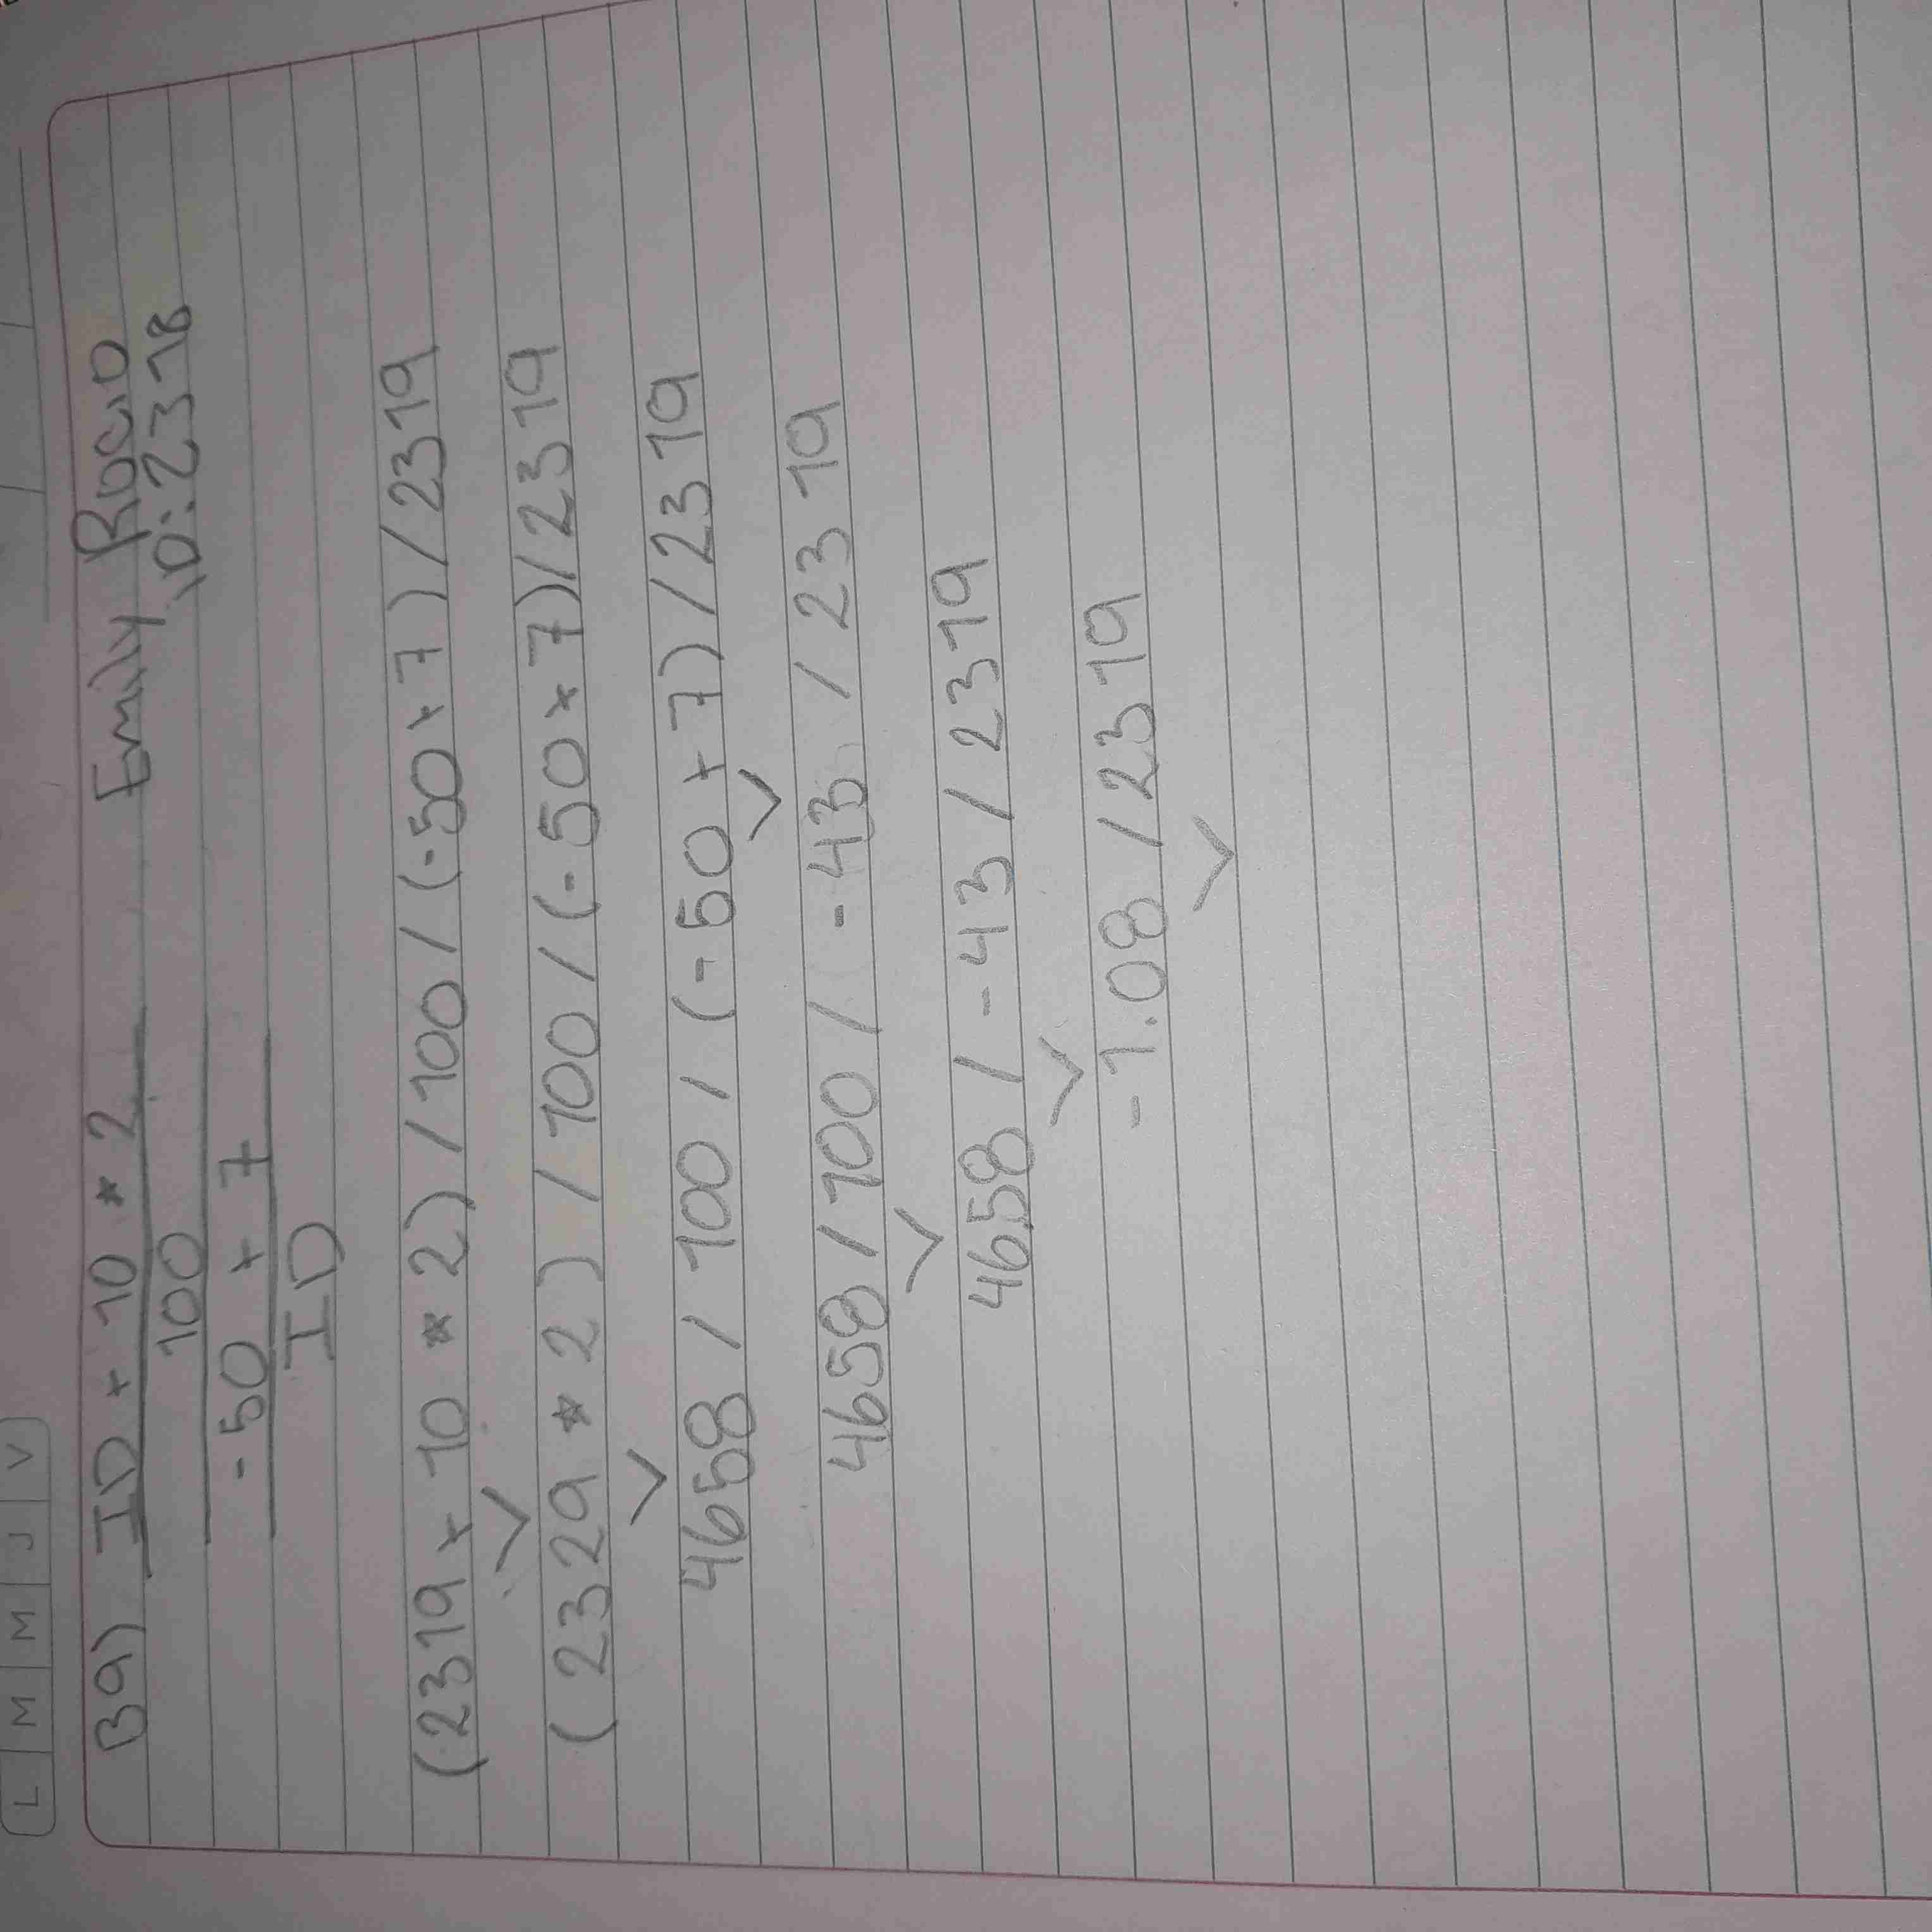 L M M J V
B9) ID + 10 * 2 Emily Rocio
100 ID: 2318
-50 + 7
ID
(2319 + 10 * 2) / 100 / (-50 + 7) / 2319
(2329 * 2) / 100 / (-50 + 7) / 2319
4658 / 100 / (-50 + 7) / 2319
4658 / 100 / -43 / 2319
46.58 / -43 / 2319
-1.08 / 2319